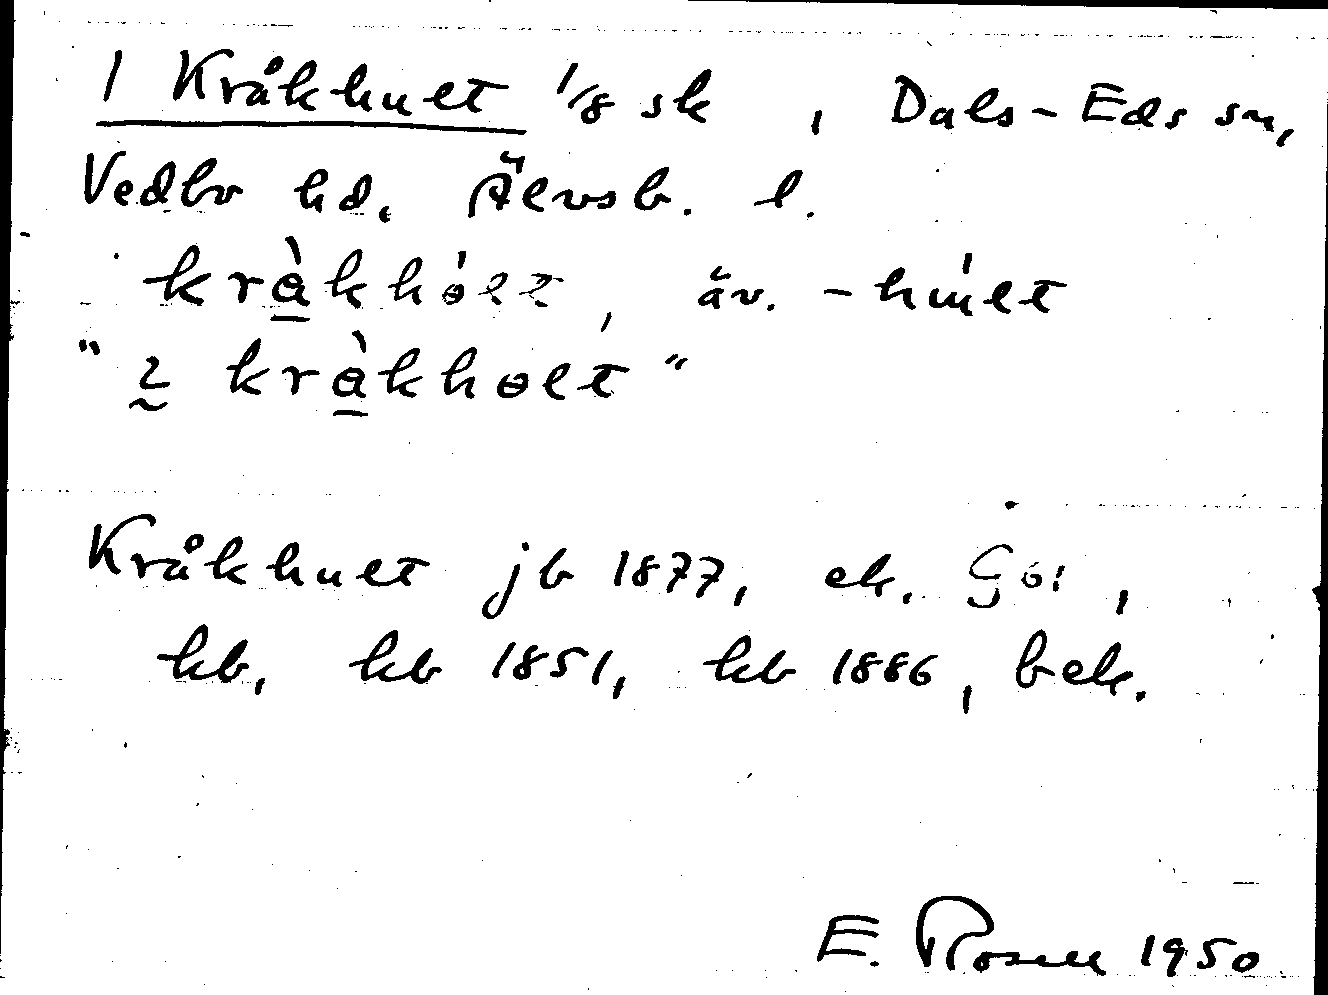 1 Kråkhult 1/8 sk , Dals-Eds sn,
Vedbo hd. Älvsb. l.
kràkhólt, äv. -hu̇́lt
"2 kràkholt"
Kråkhult jb 1877, ek. Gös ,
kb, kb 1851, kb 1886, bek.
E. Rosell 1950